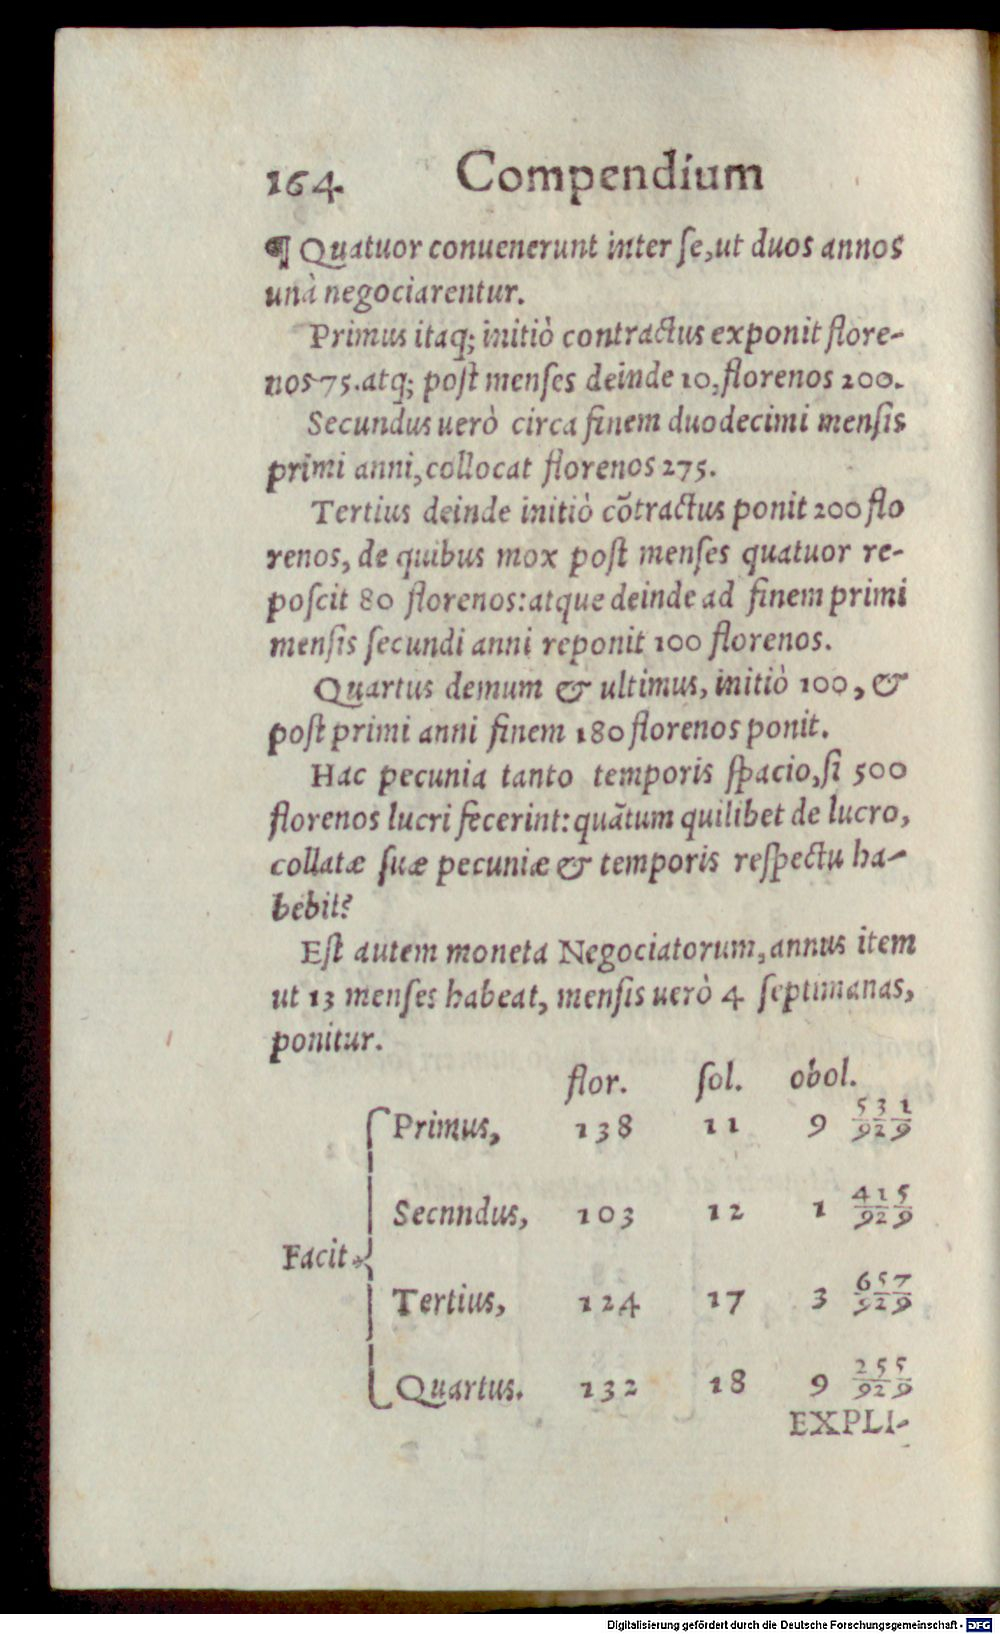 164. Compendium
¶ Quatuor conuenerunt inter ſe, ut duos annos
unà negociarentur.
Primus itaq; initiò contractus exponit flore-
nos 75. atq; poſt menſes deinde 10, florenos 200.
Secundus uerò circa finem duodecimi menſis
primi anni, collocat florenos 275.
Tertius deinde initiò cõtractus ponit 200 flo
renos, de quibus mox poſt menſes quatuor re-
poſcit 80 florenos: atque deinde ad finem primi
menſis ſecundi anni reponit 100 florenos.
Quartus demum & ultimus, initiò 100, &
poſt primi anni finem 180 florenos ponit.
Hac pecunia tanto temporis ſpacio, ſi 500
florenos lucri fecerint: quãtum quilibet de lucro,
collatæ ſuæ pecuniæ & temporis reſpectu ha-
bebit?
Eſt autem moneta Negociatorum, annus item
ut 13 menſes habeat, menſis uerò 4 ſeptimanas,
ponitur.
flor. ſol. obol.
Primus, 138 11 9 531/929
Secnndus, 103 12 1 415/929
Facit
Tertius, 124 17 3 657/929
Quartus. 132 18 9 255/929
EXPLI-
Digitalisierung gefördert durch die Deutsche Forschungsgemeinschaft - DFG